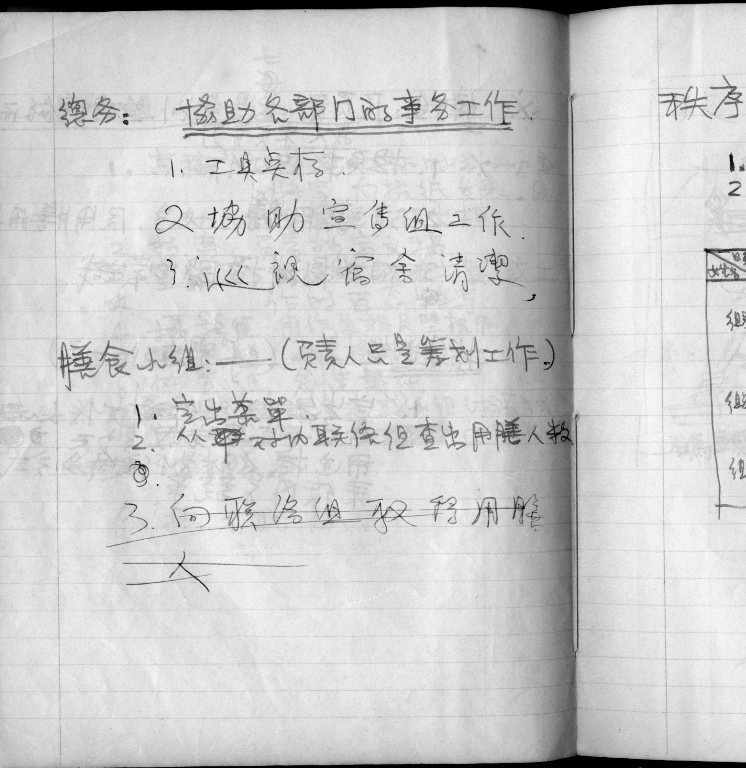 總务: 協助各部门的事务工作.
1. 工具奌存.
2 協助宣传组工作.
3. 巡視宿舍清潔,
膳食小组:——(负责人只是筹划工作.)
1. 定出菜單.
2. 从联络组查出用膳人数
3. 向联络组取得用膳
人
秩序
1.
2
组
组
组